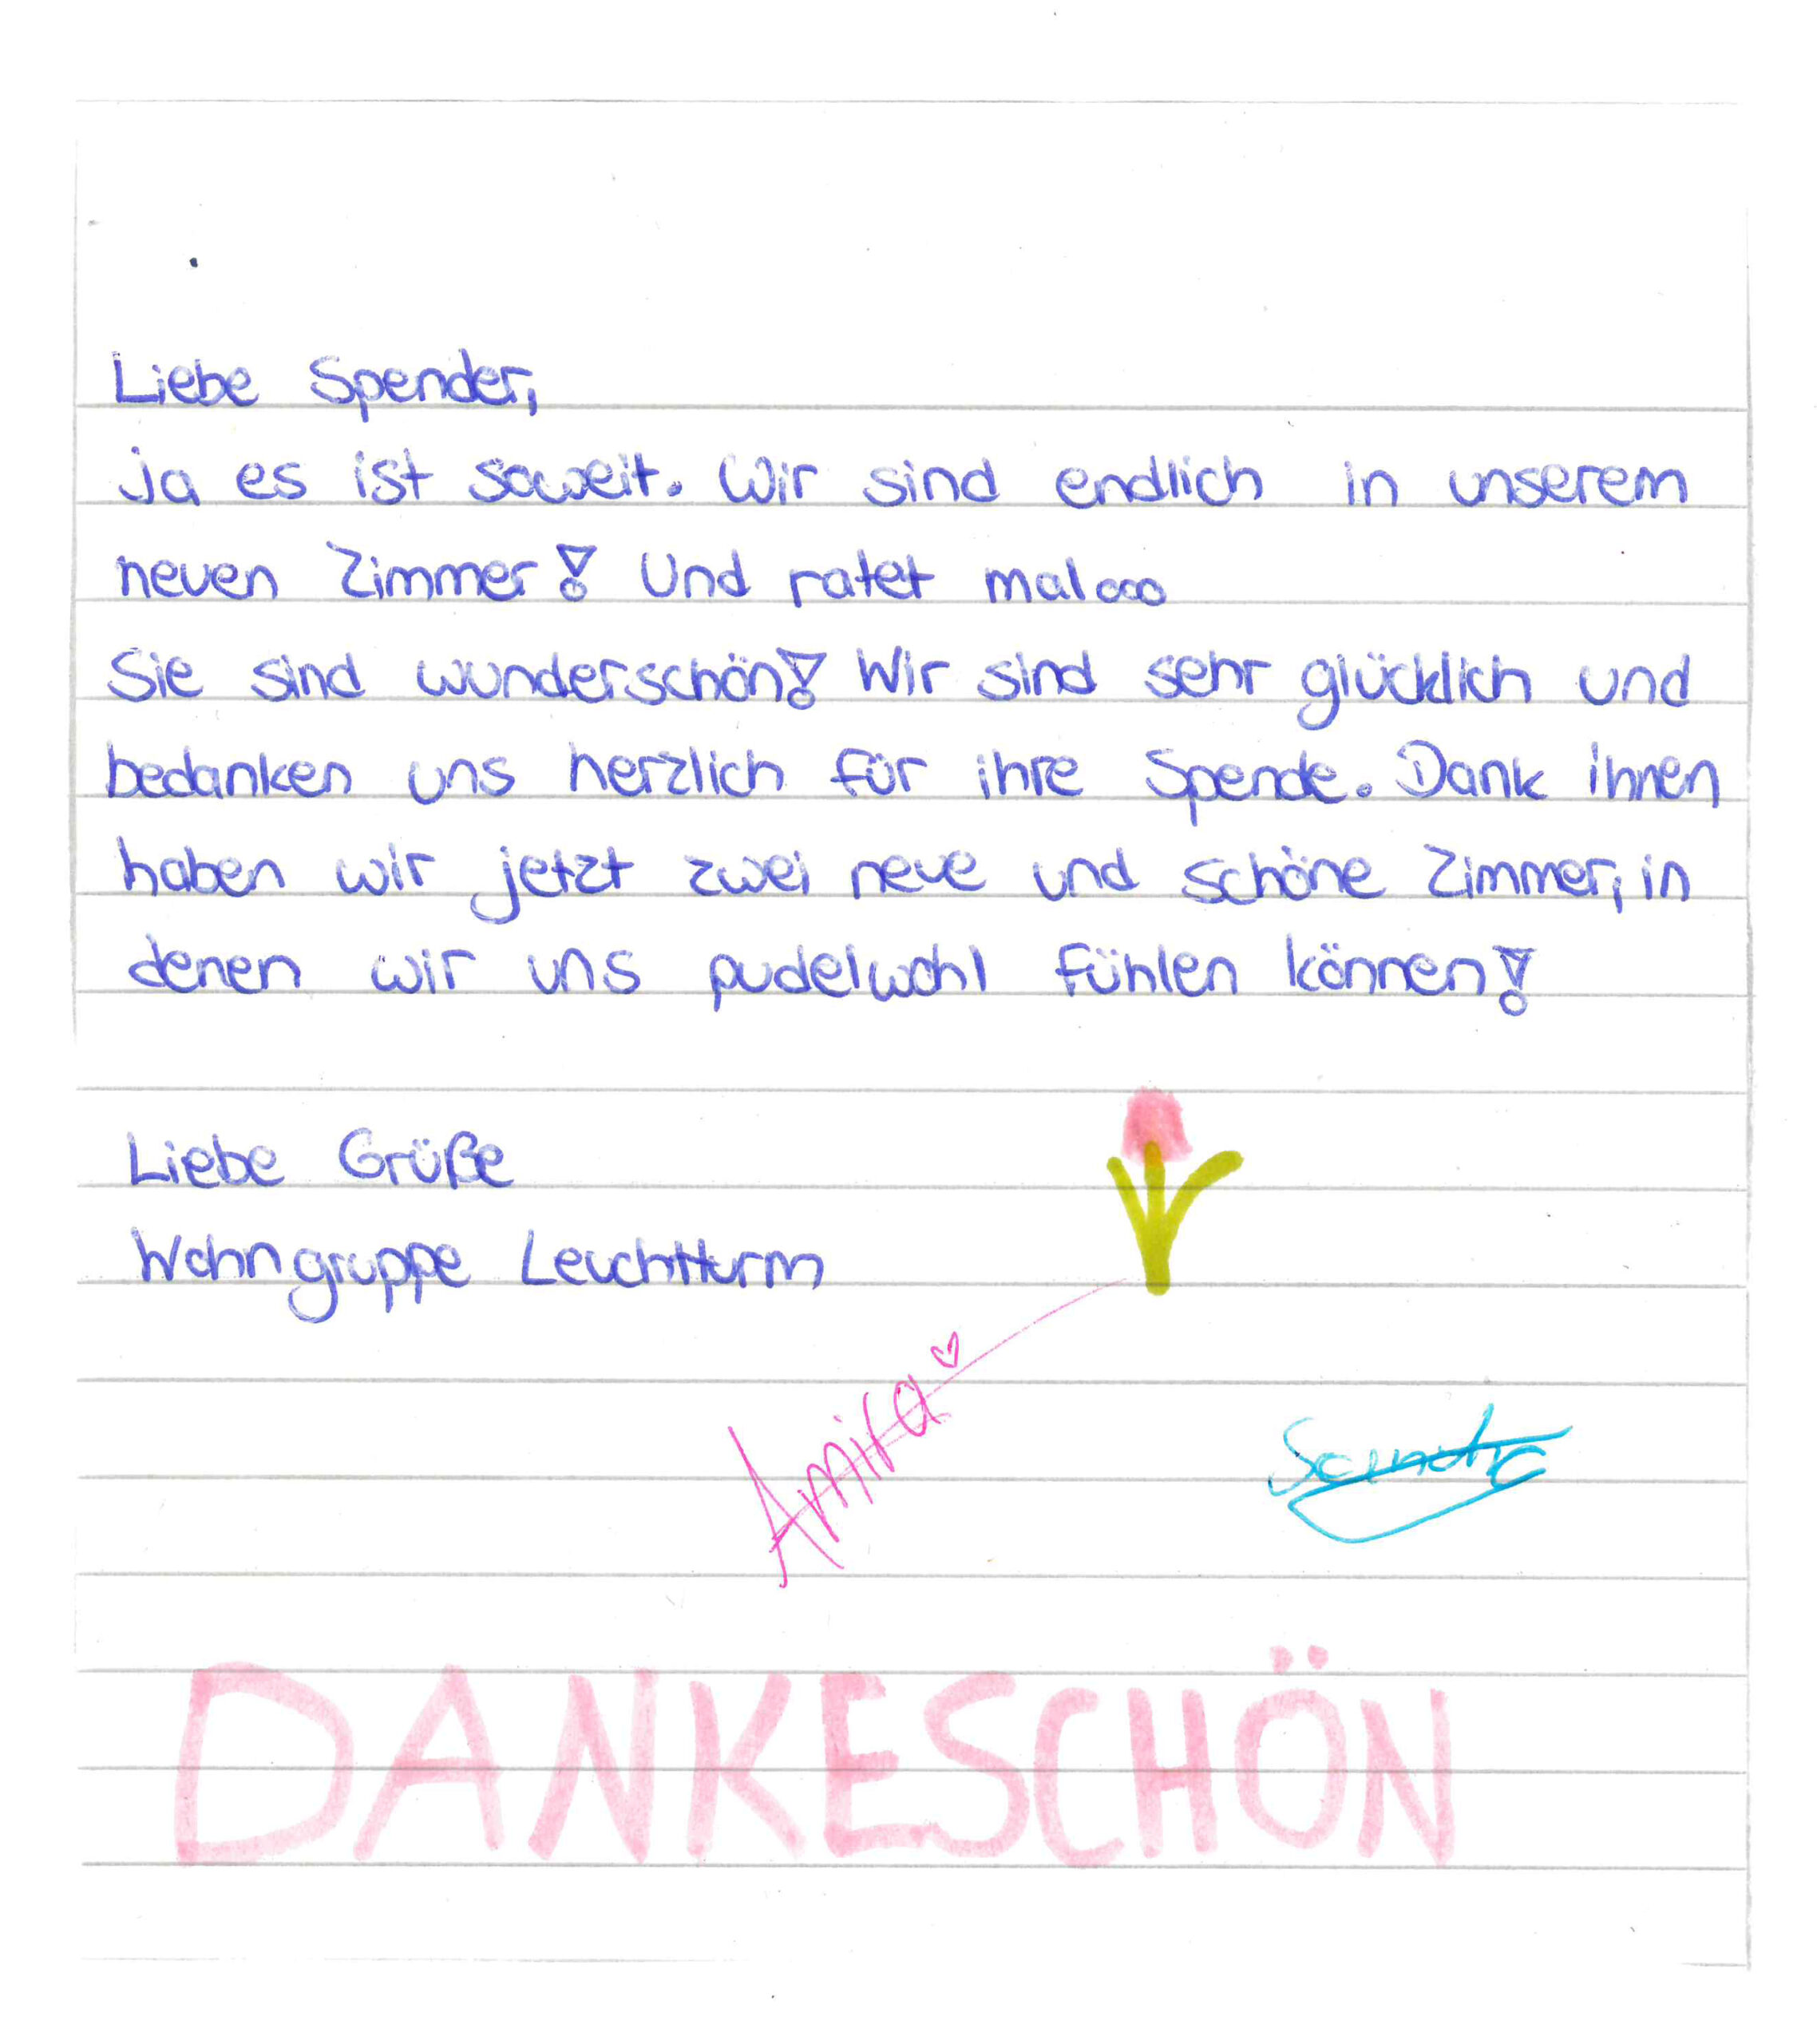 Liebe Spender,
ja es ist soweit. Wir sind endlich in unserem
neuen Zimmer! Und ratet mal...
Sie sind wunderschön! Wir sind sehr glücklich und
bedanken uns herzlich für ihre Spende. Dank ihnen
haben wir jetzt zwei neue und schöne Zimmer, in
denen wir uns pudelwohl fühlen können!
Liebe Grüße
Wohngruppe Leuchtturm
Amira
DANKESCHÖN